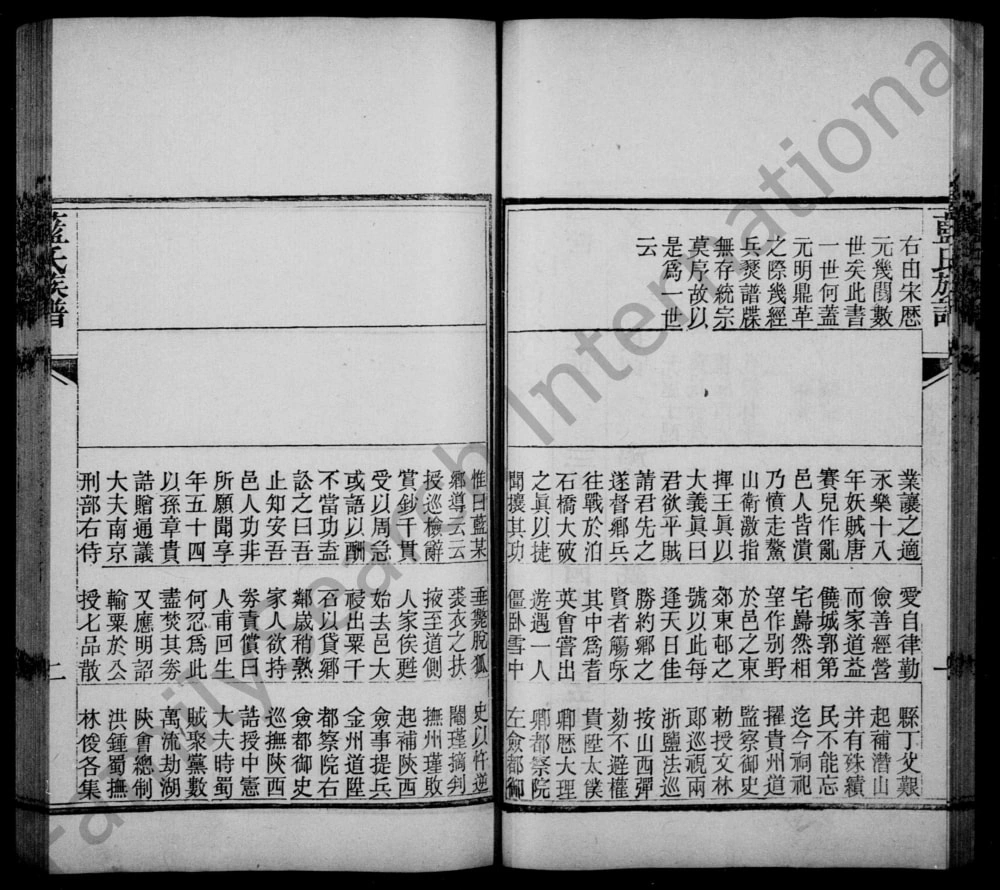 藍氏族譜
右由宋歷
元幾閱數
世矣此書
一世何蓋
元明鼎革
之際幾經
兵燹譜牒
無存統宗
莫序故以
是爲一世
云
業讓之適
永樂十八
年妖賊唐
賽兒作亂
邑人皆潰
乃憤走鰲
山衛激指
揮王眞以
大義眞曰
君欲平賊
請君先之
遂督鄉兵
往戰於泊
石橋大破
之眞以捷
聞攘其功
愛自律勤
儉善經營
而家道益
饒城郭第
宅巋然相
望作別野
於邑之東
郊東邨之
號以此每
逢天日佳
勝約鄉之
賢者觴咏
其中爲耆
英會嘗出
遊遇一人
僵臥雪中
縣丁丈艱
起補潛山
并有殊績
民不能忘
迄今祠祀
擢貴州道
監察御史
勅授文林
郞巡視兩
浙鹽法巡
按山西彈
劾不避權
貴陞太僕
卿歷大理
卿都察院
左僉都御
惟曰藍某
鄉導云云
授巡檢辭
賞鈔千貫
受以周急
或語以酬
不當功盍
訟之曰吾
止知安吾
邑人功非
所願聞享
年五十四
以孫章貴
誥贈通議
大夫南京
刑部右侍
垂斃脫狐
裘衣之扶
掖至道側
人家俟甦
始去邑大
祲出粟千
石以貸鄉
鄰歲稍熟
家人欲持
券責償曰
人甫回生
何忍爲此
盡焚其券
又應明詔
輸粟於公
授七品散
史以忤逆
閹瑾摘判
撫州瑾敗
起補陝西
僉事提兵
金州道陞
都察院右
僉都御史
巡撫陝西
誥授中憲
大夫時蜀
賊聚黨數
萬流劫湖
陝會總制
洪鍾蜀撫
林俊各集
藍氏族譜
二
FamilySearch International